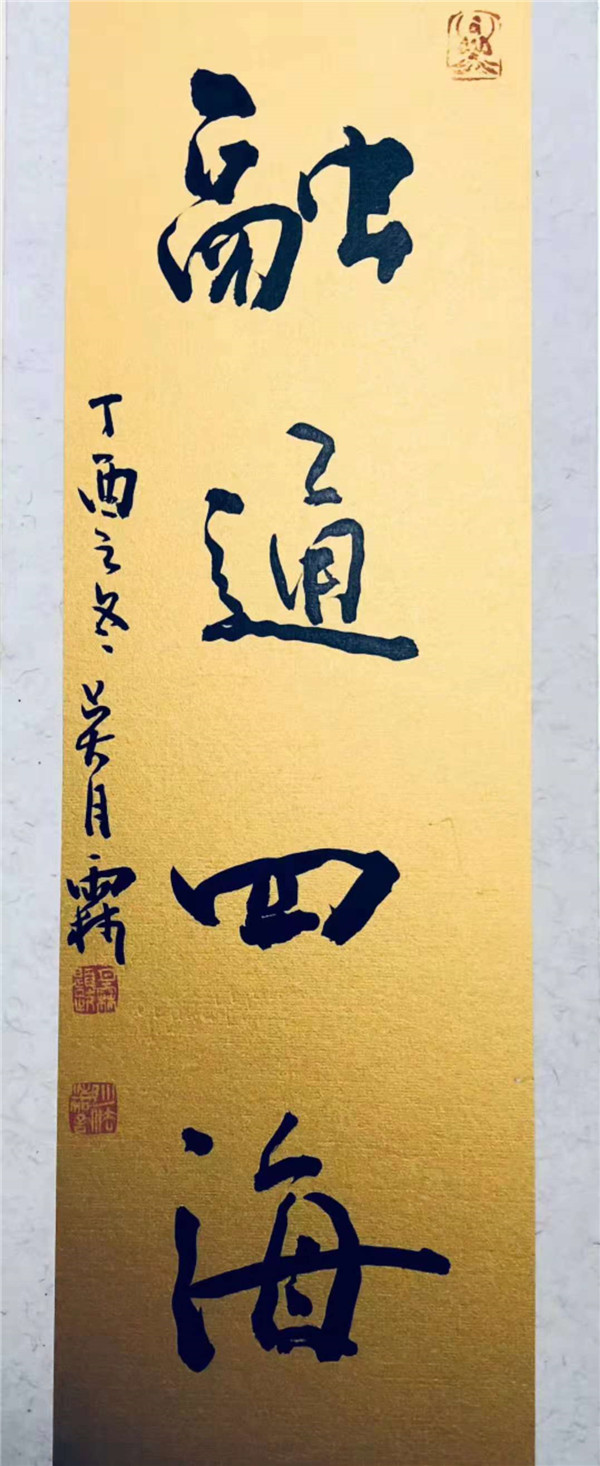 融通四海
丁酉之冬吴月霖